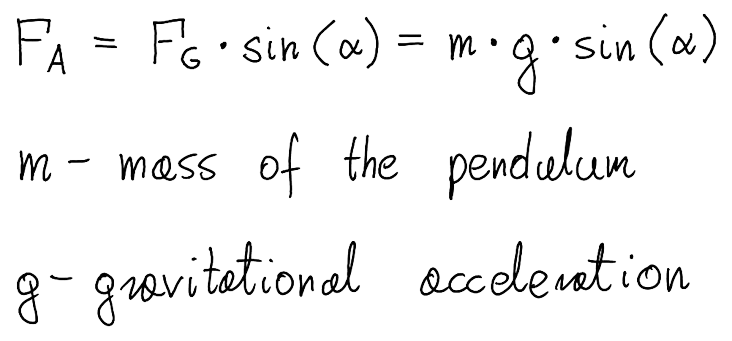 F_A = F_G · sin(α) = m · g · sin(α)
m - mass of the pendulum
g - gravitational acceleration